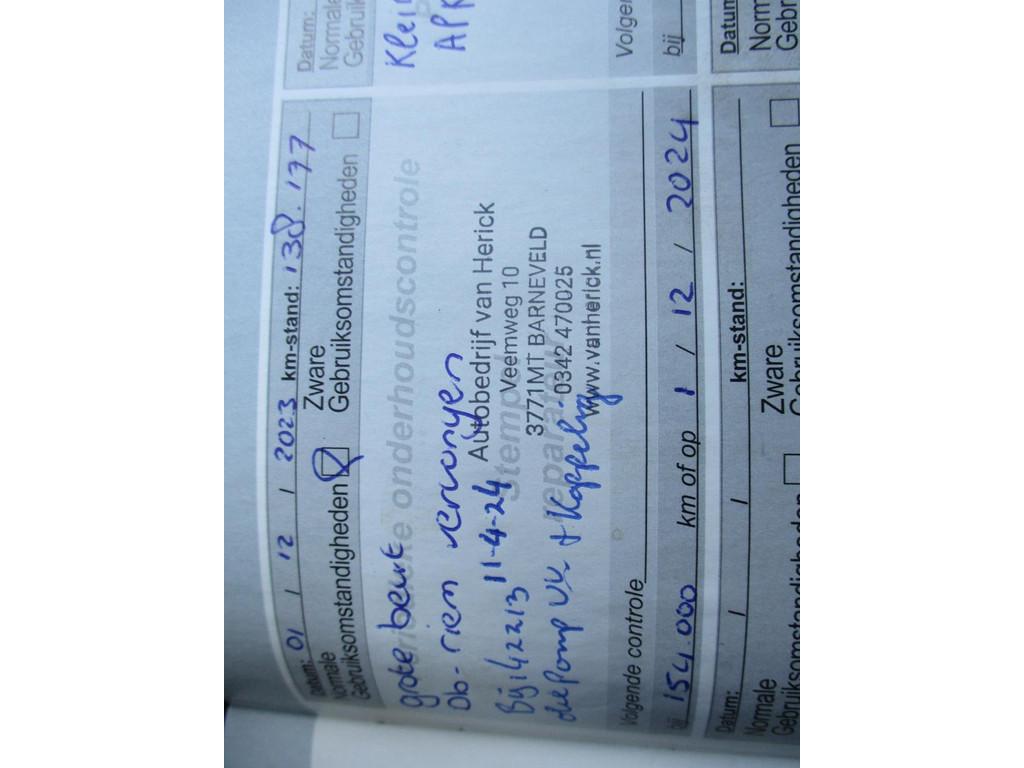 Datum: 01 / 12 / 2023 km-stand: 138.177
Normale Gebruiksomstandigheden Zware Gebruiksomstandigheden
Periodieke onderhoudscontrole
grote beurt
Db-riem vervangen
Bij 142213 11-4-24
oliepomp VV + Koppeling
Stempel
reparateur
Autobedrijf van Herick
Veemweg 10
3771MT BARNEVELD
0342 470025
www.vanherick.nl
Volgende controle
bij 154.000 km of op 1 / 12 / 2024
Datum: / / km-stand:
Normale Gebruiksomstandigheden Zware Gebruiksomstandigheden
Datum:
Normale
Klei
APK
bij
Datum